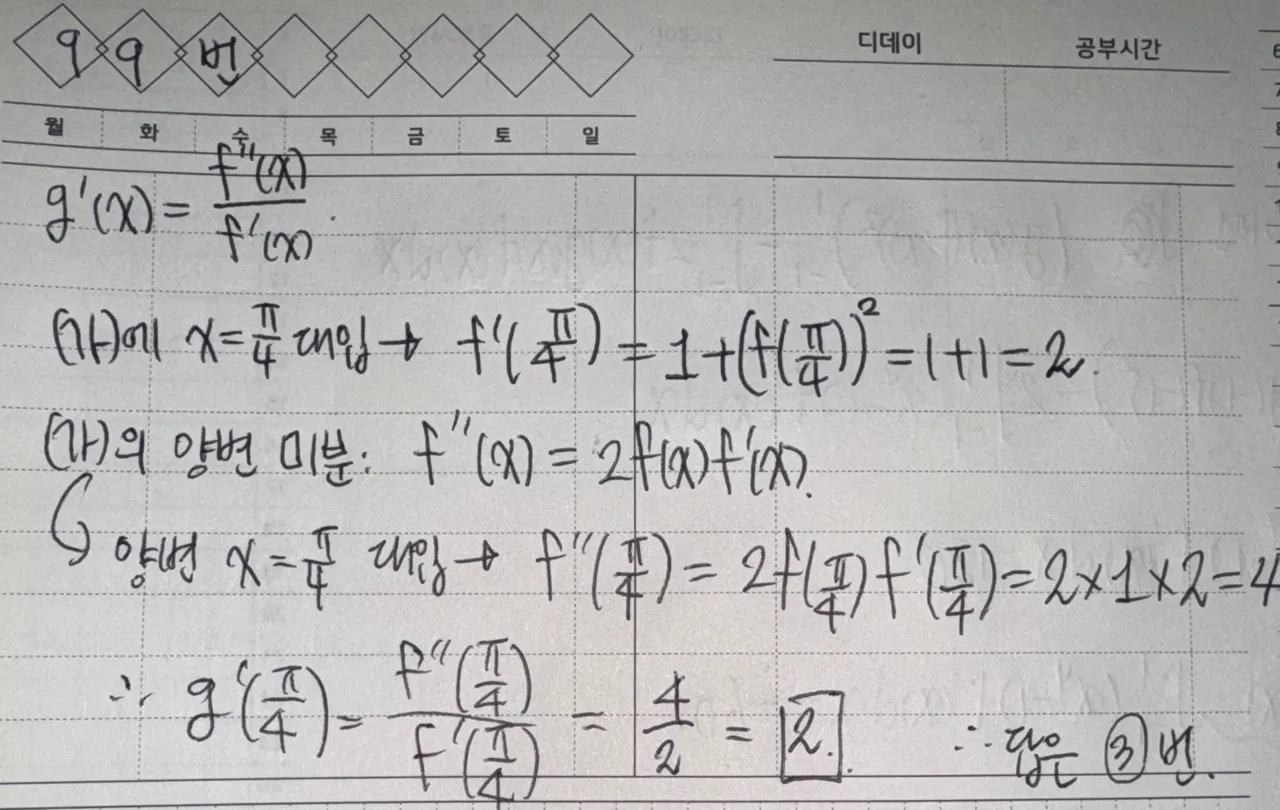 99번
디데이 공부시간
월 화 수 목 금 토 일
g'(x) = f''(x)/f'(x).
(가)에 x = π/4 대입 → f'(π/4) = 1 + (f(π/4))² = 1+1 = 2.
(가)의 양변 미분: f''(x) = 2f(x)f'(x).
양변 x = π/4 대입 → f''(π/4) = 2f(π/4)f'(π/4) = 2×1×2 = 4
∴ g'(π/4) = f''(π/4)/f'(π/4) = 4/2 = 2. ∴ 답은 ③번.